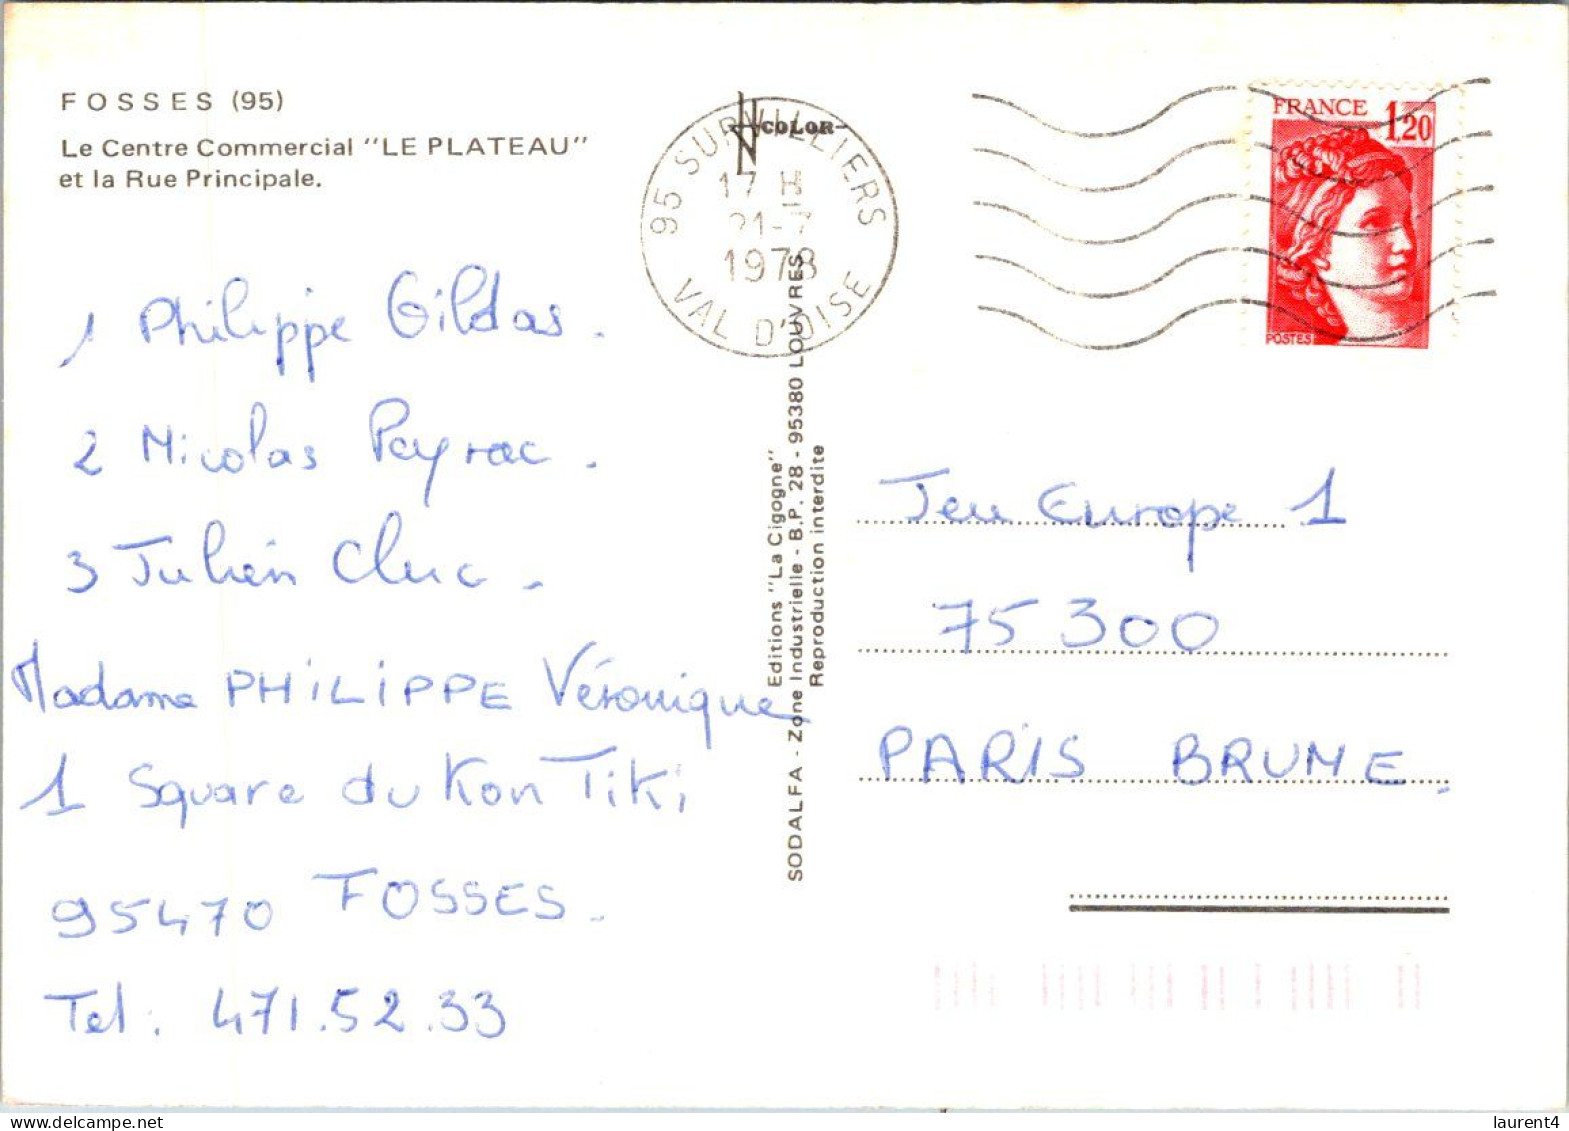 FOSSES (95)
Le Centre Commercial "LE PLATEAU"
et la Rue Principale.
COLOR
95 SURVILLIERS
17 H
21-7
1978
VAL D'OISE
FRANCE 1,20
POSTES
1 Philippe Gildas.
2 Nicolas Peyrac.
3 Julien Clerc.
Madame PHILIPPE Véronique
1 Square du Kon Tiki
95470 FOSSES.
Tel. 471.52.33
Editions "La Cigogne"
SODALFA - Zone Industrielle - B.P. 28 - 95380 LOUVRES
Reproduction interdite
Jeu Europe 1
75300
PARIS BRUNE.
laurent4